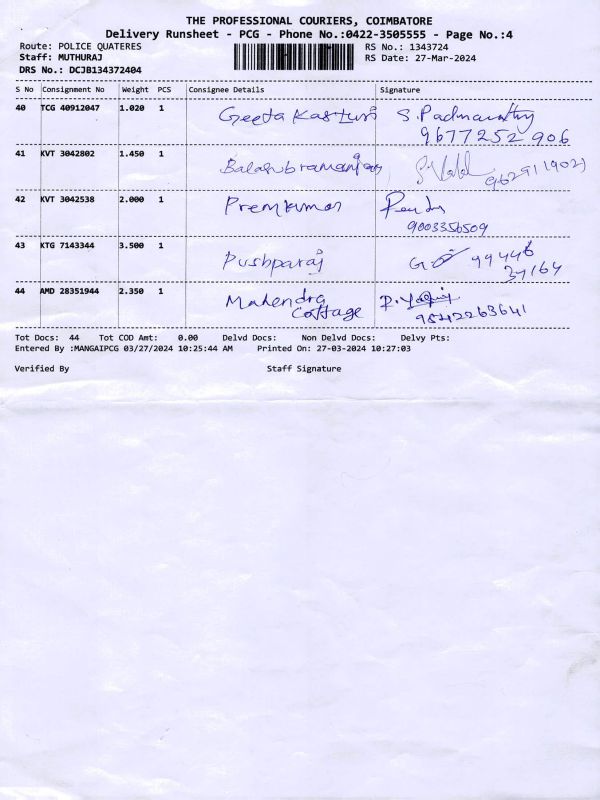 THE PROFESSIONAL COURIERS, COIMBATORE
Delivery Runsheet - PCG - Phone No.:0422-3505555 - Page No.:4
Route: POLICE QUATERES RS No.: 1343724
Staff: MUTHURAJ RS Date: 27-Mar-2024
DRS No.: DCJB134372404
S No Consignment No Weight PCS Consignee Details Signature
40 TCG 40912047 1.020 1 Geeta Kasturi S. Padmavathy
9677252906
41 KVT 3042802 1.450 1 Balasubramaniam
42 KVT 3042538 2.000 1 Premkumar
9003356509
43 KTG 7143344 3.500 1 Pushparaj 99446
37164
44 AMD 28351944 2.350 1 Mahendra
Cottage 9842263641
Tot Docs: 44 Tot COD Amt: 0.00 Delvd Docs: Non Delvd Docs: Delvy Pts:
Entered By :MANGAIPCG 03/27/2024 10:25:44 AM Printed On: 27-03-2024 10:27:03
Verified By Staff Signature